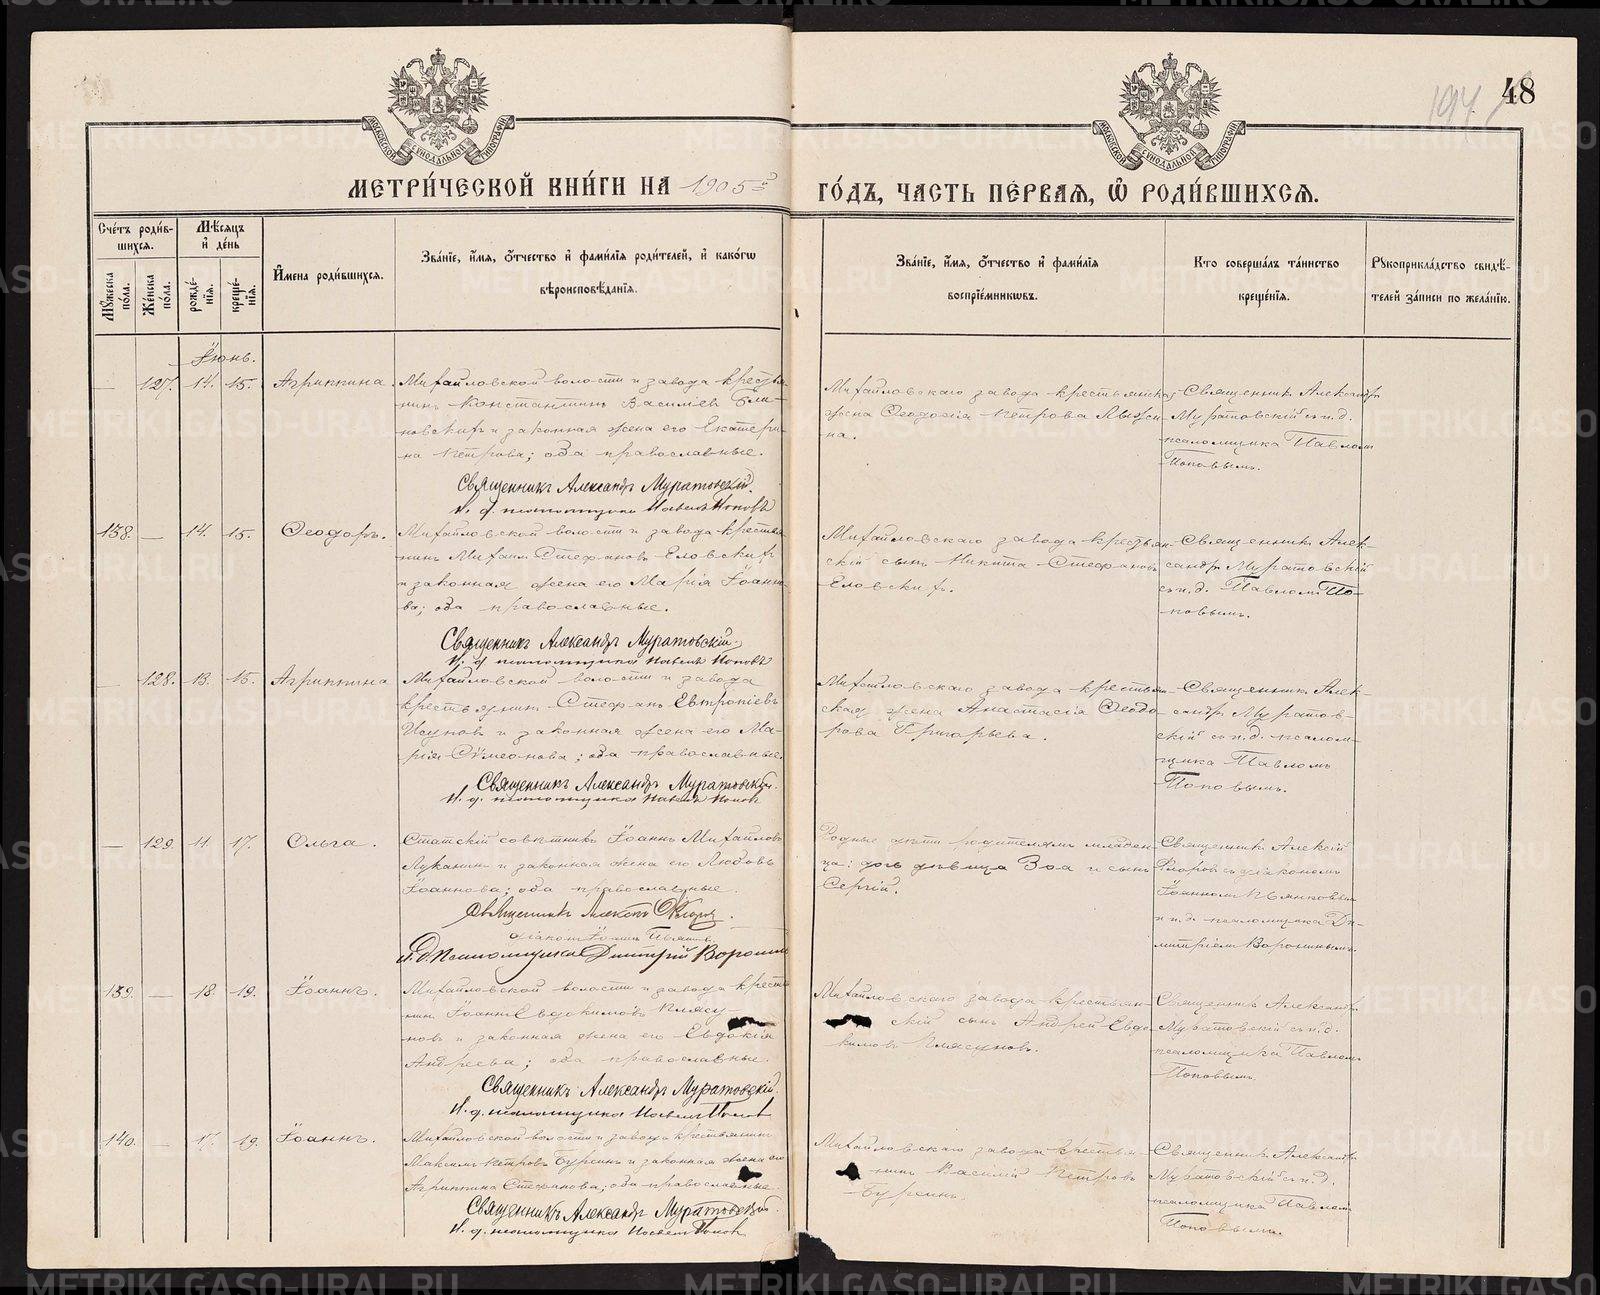 194
48
МОСКОВСКОЙ СѴНОДАЛЬНОЙ ТИПОГРАФІИ
МОСКОВСКОЙ СѴНОДАЛЬНОЙ ТИПОГРАФІИ
МЕТРИ́ЧЕСКОЙ КНИ́ГИ НА 1905й
ГО́ДЪ, ЧАСТЬ ПЕ́РВАЯ, Ѡ҆ РОДИ́ВШИХСЯ.
Сче́тъ роди́вшихся.
Му́жеска по́ла.
Же́нска по́ла.
Мѣ́сяцъ и҆ де́нь
рожде́нія.
креще́нія.
И҆мена роди́вшихся.
Зва́ніе, и҆́мя, ѻ҆́тчество и҆ фами́лія роди́телей, и҆ како́гѡ
вѣроисповѣ́данія.
Зва́ніе, и҆́мя, ѻ҆́тчество и҆ фами́лія
воспріе́мникѡвъ.
Кто соверша́лъ та́инство
креще́нія.
Рукоприкла́дство свидѣ́-
телей за́писи по жела́нію.
Іюнь.
— 127. 14. 15. Агриппина.
Михайловской волости и завода крестья-
нинъ Константинъ Василіевъ Бли-
новскихъ и законная жена его Екатери-
на Петрова; оба православные.
Священникъ Александръ Муратовскій.
И. д. псаломщика Павелъ Поповъ
Михайловскаго завода крестьянская
жена Ѳеодосія Петрова Лызи-
на.
Священникъ Александръ
Муратовскій съ и. д.
псаломщика Павломъ
Поповымъ.
138. — 14. 15. Ѳеодоръ.
Михайловской волости и завода крестья-
нинъ Михаилъ Стефановъ Еловскихъ
и законная жена его Марія Іоанно-
ва; оба православные.
Священникъ Александръ Муратовскій.
И. д. псаломщика Павелъ Поповъ
Михайловскаго завода крестьян-
скій сынъ Никита Стефановъ
Еловскихъ.
Священникъ Алек-
сандръ Муратовскій
съ и. д. Павломъ По-
повымъ.
— 128. 13. 15. Агриппина
Михайловской волости и завода
крестьянинъ Стефанъ Евтропіевъ
Исуповъ и законная жена его Ма-
рія Сѵмеонова; оба православные.
Священникъ Александръ Муратовскій.
И. д. псаломщика Павелъ Поповъ
Михайловскаго завода крестьян-
ская жена Анастасія Ѳеодо-
рова Григорьева.
Священникъ Алек-
сандръ Муратов-
скій съ и. д. псалом-
щика Павломъ
Поповымъ.
— 129. 11. 17. Ольга.
Статскій совѣтникъ Іоаннъ Михайловъ
Луканинъ и законная жена его Любовь
Іоаннова; оба православные.
Священникъ Алексій Флоровъ.
діаконъ Іоаннъ
и. д. псаломщика Димитрій Воронинъ
Родные дѣти родителямъ младен-
ца: дочь дѣвица Зоа и сынъ
Сергій.
Священникъ Алексій
Флоровъ съ діакономъ
Іоанномъ
и и. д. псаломщика Ди-
митріемъ Воронинымъ.
139. — 18. 19. Іоаннъ.
Михайловской волости и завода крестья-
нинъ Іоаннъ Евдокимовъ Плясу-
новъ и законная жена его Евдокія
Андреева; оба православные.
Священникъ Александръ Муратовскій.
И. д. псаломщика Павелъ Поповъ
Михайловскаго завода крестьян-
скій сынъ Андрей Евдо-
кимовъ Плясуновъ.
Священникъ Александръ
Муратовскій съ и. д.
псаломщика Павломъ
Поповымъ.
140. — 17. 19. Іоаннъ.
Михайловской волости и завода крестьянинъ
Максимъ Петровъ Бурсинъ и законная жена его
Агриппина Стефанова; оба православные.
Священникъ Александръ Муратовскій.
И. д. псаломщика Павелъ Поповъ
Михайловскаго завода крестья-
нинъ Василій Петровъ
Бурсинъ.
Священникъ Александръ
Муратовскій съ и. д.
псаломщика Павломъ
Поповымъ.
METRIKI.GASO-URAL.RU